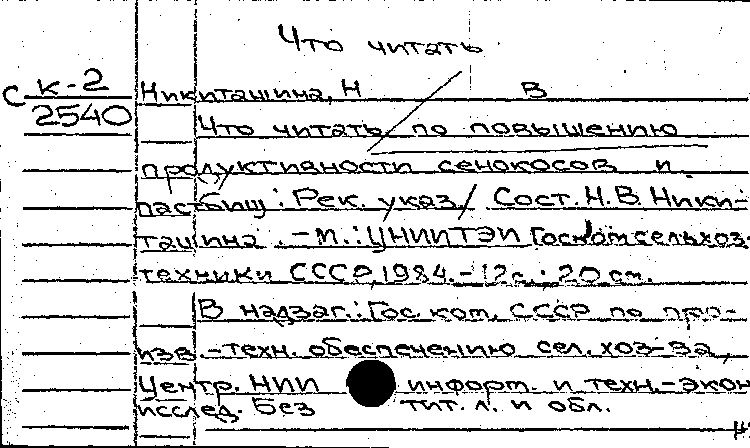 Что читать
С К-2 Никиташина, Н В
2540
Что читать по повышению
продуктивности сенокосов и
пастбищ : Рек. указ. / Сост. Н.В. Ники-
ташина. - М.: ЦНИИТЭИ Госкомсельхоз-
техники СССР, 1984. - 12 с. ; 20 см.
В надзаг.: Гос ком. СССР по про-
изв.-техн. обеспечению сел. хоз-ва,
Центр. НИИ информ. и техн.-экон
исслед. Без тит. л. и обл.